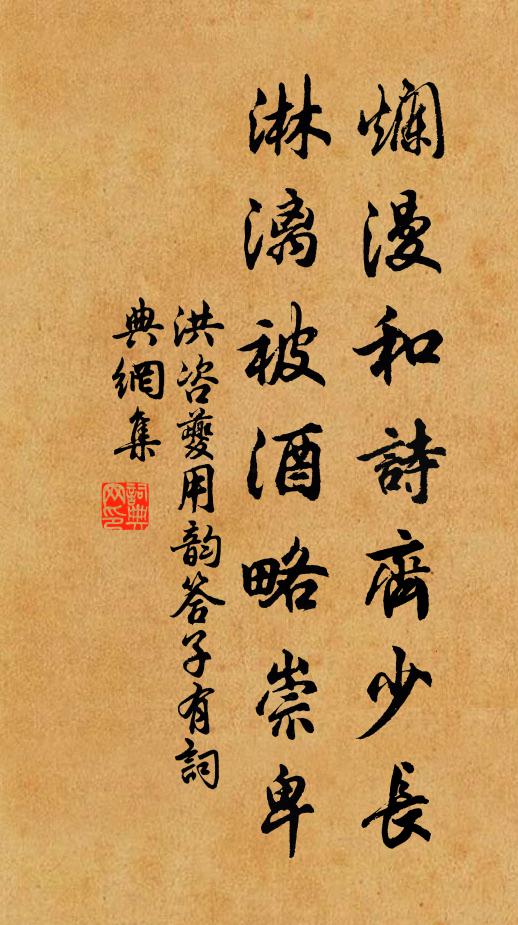 爛漫和詩齊少長
淋漓被酒略崇卑
洪咨夔用韵答子有詞
典網集
詞典網印